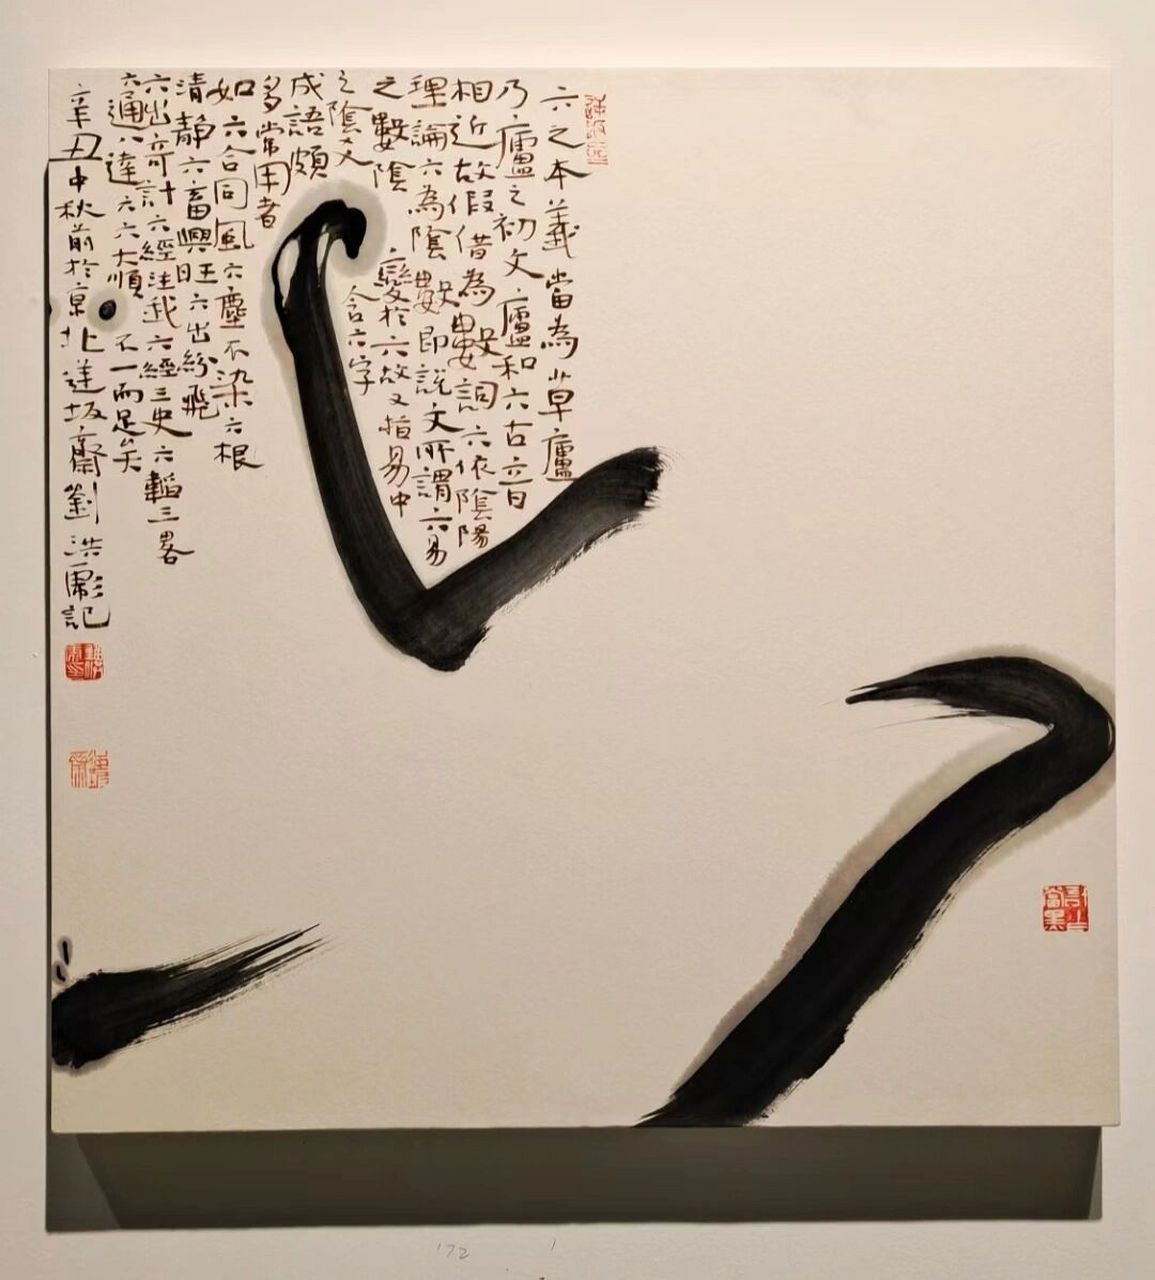 六之本義當為草廬
乃廬之初文廬和六古音
相近故假借為數詞六依陰陽
理論六為陰數即說文所謂六易
之數陰變於六故又指易中
之陰爻含六字
成語頗
多常用者
如六合同風六塵不染六根
清靜六畜興旺六出紛飛
六出奇計六經注我六經三史六韜三畧
六通八達六六大順不一而足矣
辛丑中秋前於京北逆坂齋劉洪彪記
172